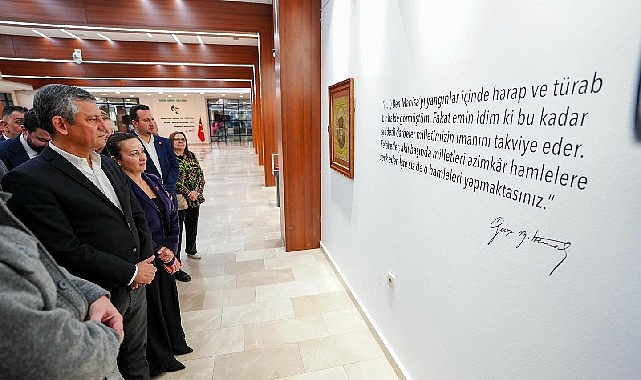 "(...) Ben Manisa'yı yangınlar içinde harap ve türab
bir halde görmüştüm. Fakat emin idim ki bu kadar
darbeler milletimizin imanını takviye eder.
Felaketler, aklı başında milletleri azimkâr hamlelere
sevk eder. İşte siz de o hamleleri yapmaktasınız."